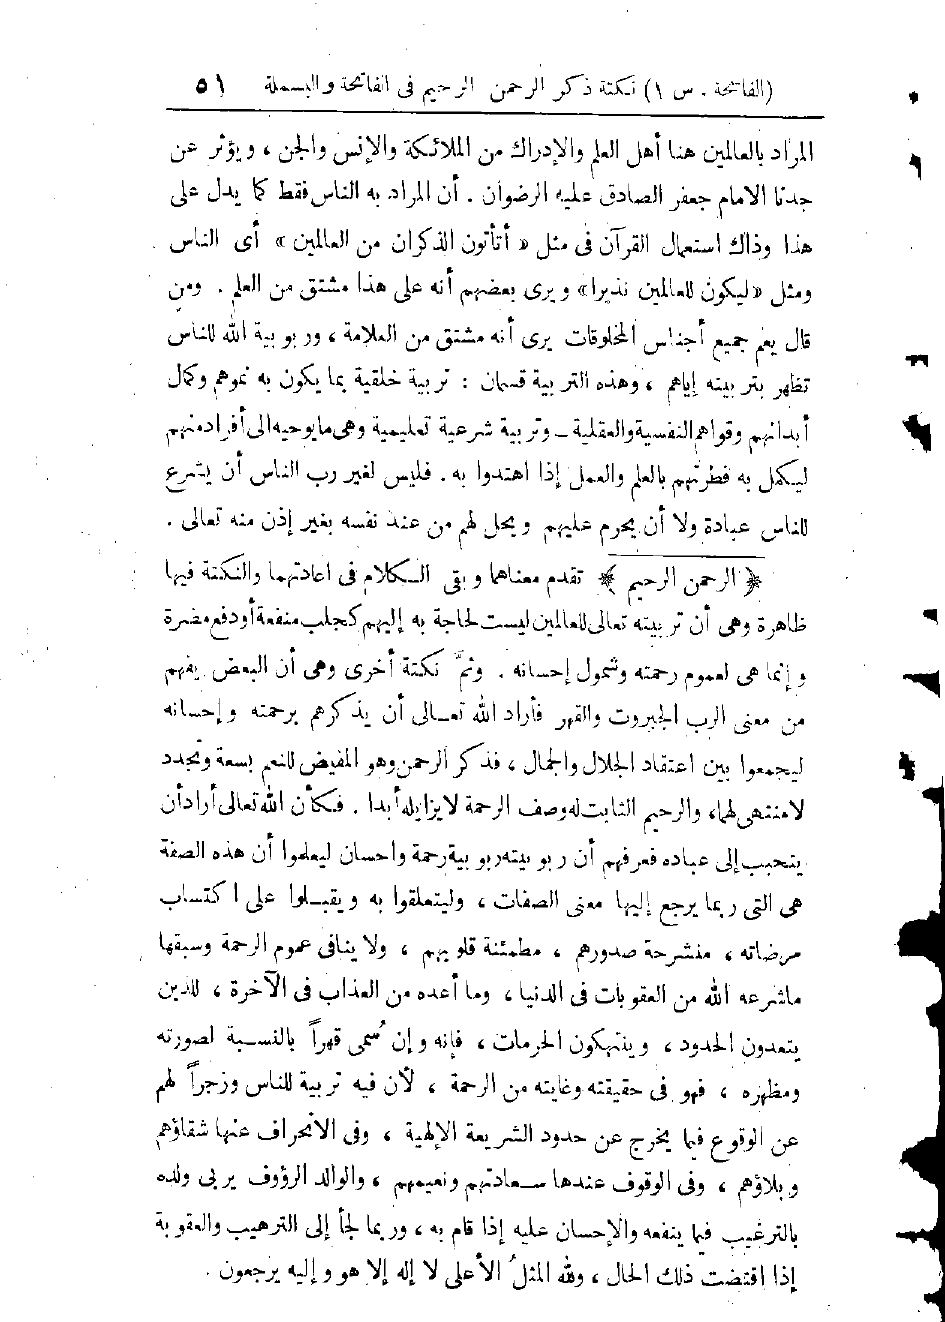 (الفاتحة . س ١) نكتة ذكر الرحمن الرحيم فى الفاتحة والبسملة ٥١
المراد بالعالمين هنا أهل العلم والإدراك من الملائكة والإنس والجن ، ويؤثر عن
جدنا الامام جعفر الصادق عليه الرضوان . أن المراد به الناس فقط كما يدل على
هذا وذاك استعمال القرآن فى مثل « أتأتون الذكران من العالمين » أى الناس
ومثل « ليكون للعالمين نذيرا » ويرى بعضهم أنه على هذا مشتق من العلم . ومن
قال يعم جميع أجناس المخلوقات يرى أنه مشتق من العلامة ، وربوبية الله للناس
تظهر بتربيته إياهم ، وهذه التربية قسمان : تربية خلقية بما يكون به نموهم وكمال
أبدانهم وقواهم النفسية والعقلية ــ وتربية شرعية تعليمية وهى ما يوحيه الى أفراد منهم
ليكمل به فطرتهم بالعلم والعمل إذا اهتدوا به . فليس لغير رب الناس أن يشرع
للناس عبادة ولا أن يحرم عليهم ويحل لهم من عند نفسه بغير إذن منه تعالى .
﴿ الرحمن الرحيم ﴾ تقدم معناهما وبقى الكلام فى اعادتهما والنكتة فيها
ظاهرة وهى أن تربيته تعالى للعالمين ليست لحاجة به إليهم كجلب منفعة أو دفع مضرة
وإنما هى لعموم رحمته وشمول إحسانه . وثمَّ نكتة أخرى وهى أن البعض يفهم
من معنى الرب الجبروت والقهر فأراد الله تعالى أن يذكرهم برحمته وإحسانه
ليجمعوا بين اعتقاد الجلال والجمال ، فذكر الرحمن وهو المفيض للنعم بسعة وتجدد
لا منتهى لهما، والرحيم الثابت له وصف الرحمة لا يزايله أبدا . فكأن الله تعالى أراد أن
يتحبب إلى عباده فعرفهم أن ربوبيته ربوبية رحمة واحسان ليعلموا أن هذه الصفة
هى التى ربما يرجع إليها معنى الصفات ، وليتعلقوا به ويقبلوا على اكتساب
مرضاته ، منشرحة صدورهم ، مطمئنة قلوبهم ، ولا ينافى عموم الرحمة وسبقها
ماشرعه الله من العقوبات فى الدنيا ، وما أعده من العذاب فى الآخرة ، للذين
يتعدون الحدود ، وينتهكون الحرمات ، فإنه وإن سُمى قهراً بالنسبة لصورته
ومظهره ، فهو فى حقيقته وغايته من الرحمة ، لأن فيه تربية للناس وزجراً لهم
عن الوقوع فيما يخرج عن حدود الشريعة الإلهية ، وفى الانحراف عنها شقاؤهم
وبلاؤهم ، وفى الوقوف عندها سعادتهم ونعيمهم ، والوالد الرؤوف يربى ولده
بالترغيب فيما ينفعه والإحسان عليه إذا قام به ، وربما لجأ إلى الترهيب والعقوبة
إذا اقتضت ذلك الحال ، ولله المثلُ الأعلى لا إله إلا هو وإليه يرجعون .